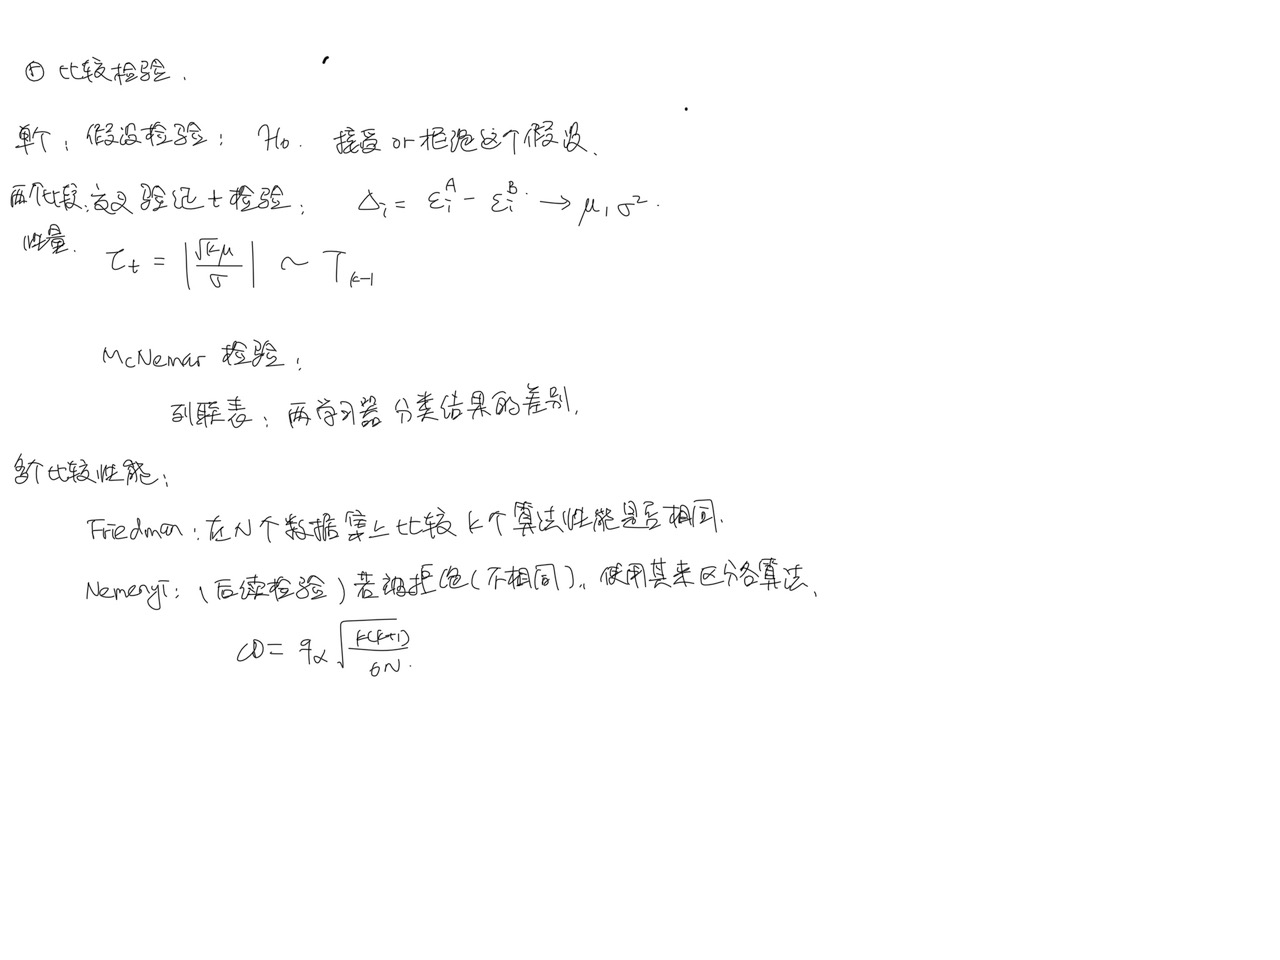 ④ 比较检验.
单个: 假设检验: H₀. 接受or拒绝这个假设.
两个比较: 交叉验证 t 检验: Δᵢ = εᵢᴬ - εᵢᴮ → μ, σ².
性量.
τₜ = |√k μ / σ| ~ Tₖ₋₁
McNemar 检验:
列联表: 两学习器分类结果的差别.
多个比较性能:
Friedman: 在N个数据集上比较k个算法性能是否相同.
Nemenyi: (后续检验) 若被拒绝(不相同). 使用其来区分各算法.
CD = qα √(k(k+1) / 6N).